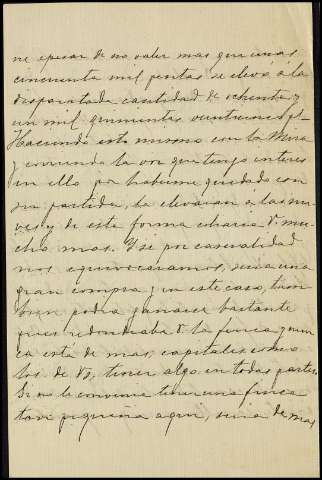 ni apesar de no valer mas que unas
cincuenta mil pesetas se elevó á la
disparatada cantidad de ochenta y
un mil quinientas veintiuna pt
Haciendo esto mismo con la Mira
y corriendo la voz que tengo interes
en ello por haberme quedado con
su partida, la elevarian á las nu-
ves y de esta forma echaria V. mu-
cho mas. Y si por casualidad
nos equivocaramos, seria una
gran compra y en este caso, tam
bien podra ganarse bastante
pues redondeaba V. la finca y nun
ca está de mas, capitales como
los de V., tener algo en todas partes
Si no le conviene tener una finca
tan pequeña aqui, seria de mas